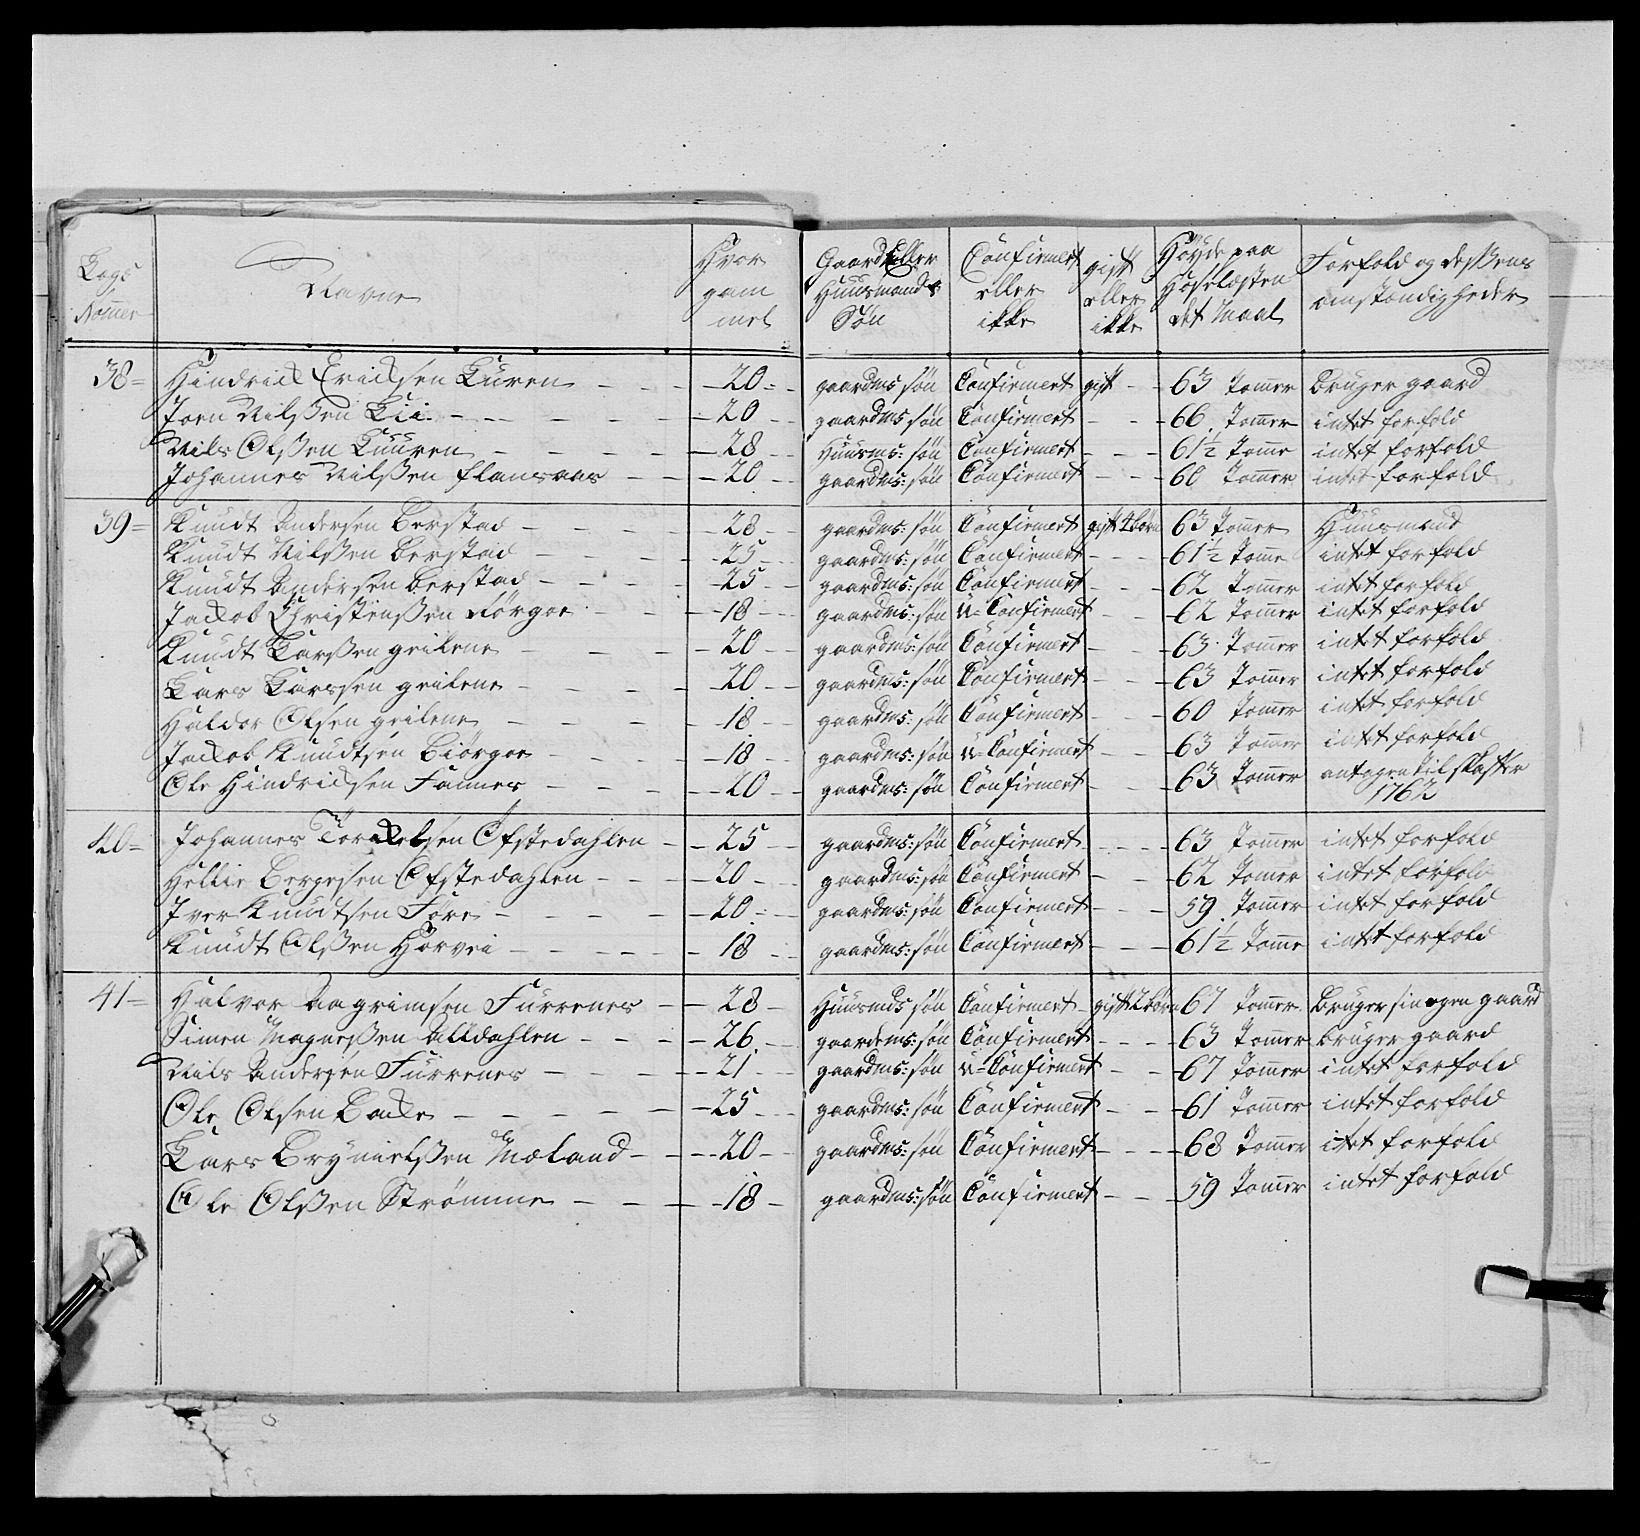 Lægs Nomer | Navne | Hvor gam mel | Gaard Eller Huusmands Søn | Confirmert eller ikke | gift eller ikke | Høyde paa Hoselæsten det Maal | Forfald og desßens omstændigheder
38= Hindrick Ericksen Luren - - - 20 - gaardms søn Confirmert gift - - 63 Tomer bruger gaard
Joen Nilsßen Lii - - - 20 - gaardms søn Confirmert - - 66 Tomer intet forfald
Nils Olsßen Luuren - - - 28 - Huusms: søn Confirmert - - 61½ Tome intet forfald
Johannes Nilsßen - - 20 - gaardms: søn Confirmert - - 60 Tomer intet forfald
39= Knudt Andersen Berstad - - - 28 - gaardms: søn Confirmert gift 2 børn 63 Tomer Huusmand
Knudt Nilsßen Berstad - - - 25 - gaardms: søn Confirmert - - 61½ Tome intet forfald
Knudt Andersen Berstad - - - 25 - gaardms: søn Confirmert - - 62 Tomer intet forfald
Jackob Christensßen - - - 18 - gaardms: søn u=Confirmert - - 62 Tomer intet forfald
Knudt Larsßen grilene - - - 20 - gaardms: søn Confirmert - - 63 Tomer intet forfald
Lars Larssen grilene - - - 20 - gaardms: søn Confirmert - - 63 Tomer intet forfald
Haldor Olsen grilene - - - 18 - gaardms: søn Confirmert - - 60 Tomer intet forfald
Jackob Knudtsen Biørgoe - - - 18 - gaardms: søn u=Confirmert - - 63 Tomer intet forfald
Ole Hindricksen Fannes - - - 20 - gaardms: søn Confirmert - - 63 Tomer antagen til
1762
40= Johannes Torckelsen Ofstedahlen - - 25 - gaardms: søn Confirmert - - 63 Tomer intet forfald
Hellie Bergesen Ofstedahlen - - - 20 - gaardms: søn Confirmert - - 62 Tomer intet forfald
Iver Knudtsen Føre - - - 20 - gaardms: søn Confirmert - - 59 Tomer intet forfald
Knudt Olsßen Horvei - - - 18 - gaardms: søn Confirmert - - 61½ Tome intet forfald
41= Halvor Aagrimsen Furrenes - - 28 - Huusmds søn Confirmert - gift 2 børn 67 Tomer bruger sin egen gaard
Simen Magnesßen alldahlen - - - 26 - gaardems: søn Confirmert - - 63 Tomer bruger gaard
Nils Andersen Furrenes - - - 21 - gaardms: søn u=Confirmert - - 67 Tomer intet forfald
Ole Olsen Backe - - - 25 - gaardms: søn Confirmert - - 61 Tomer intet forfald
Lars Brynielsßen Mæland - - - 20 - gaardms: søn Confirmert - - 68 Tomer itet forfald
Ole Olsßen Strømme - - - 18 - gaardms: søn Confirmert - - 59 Tomer intet forfald